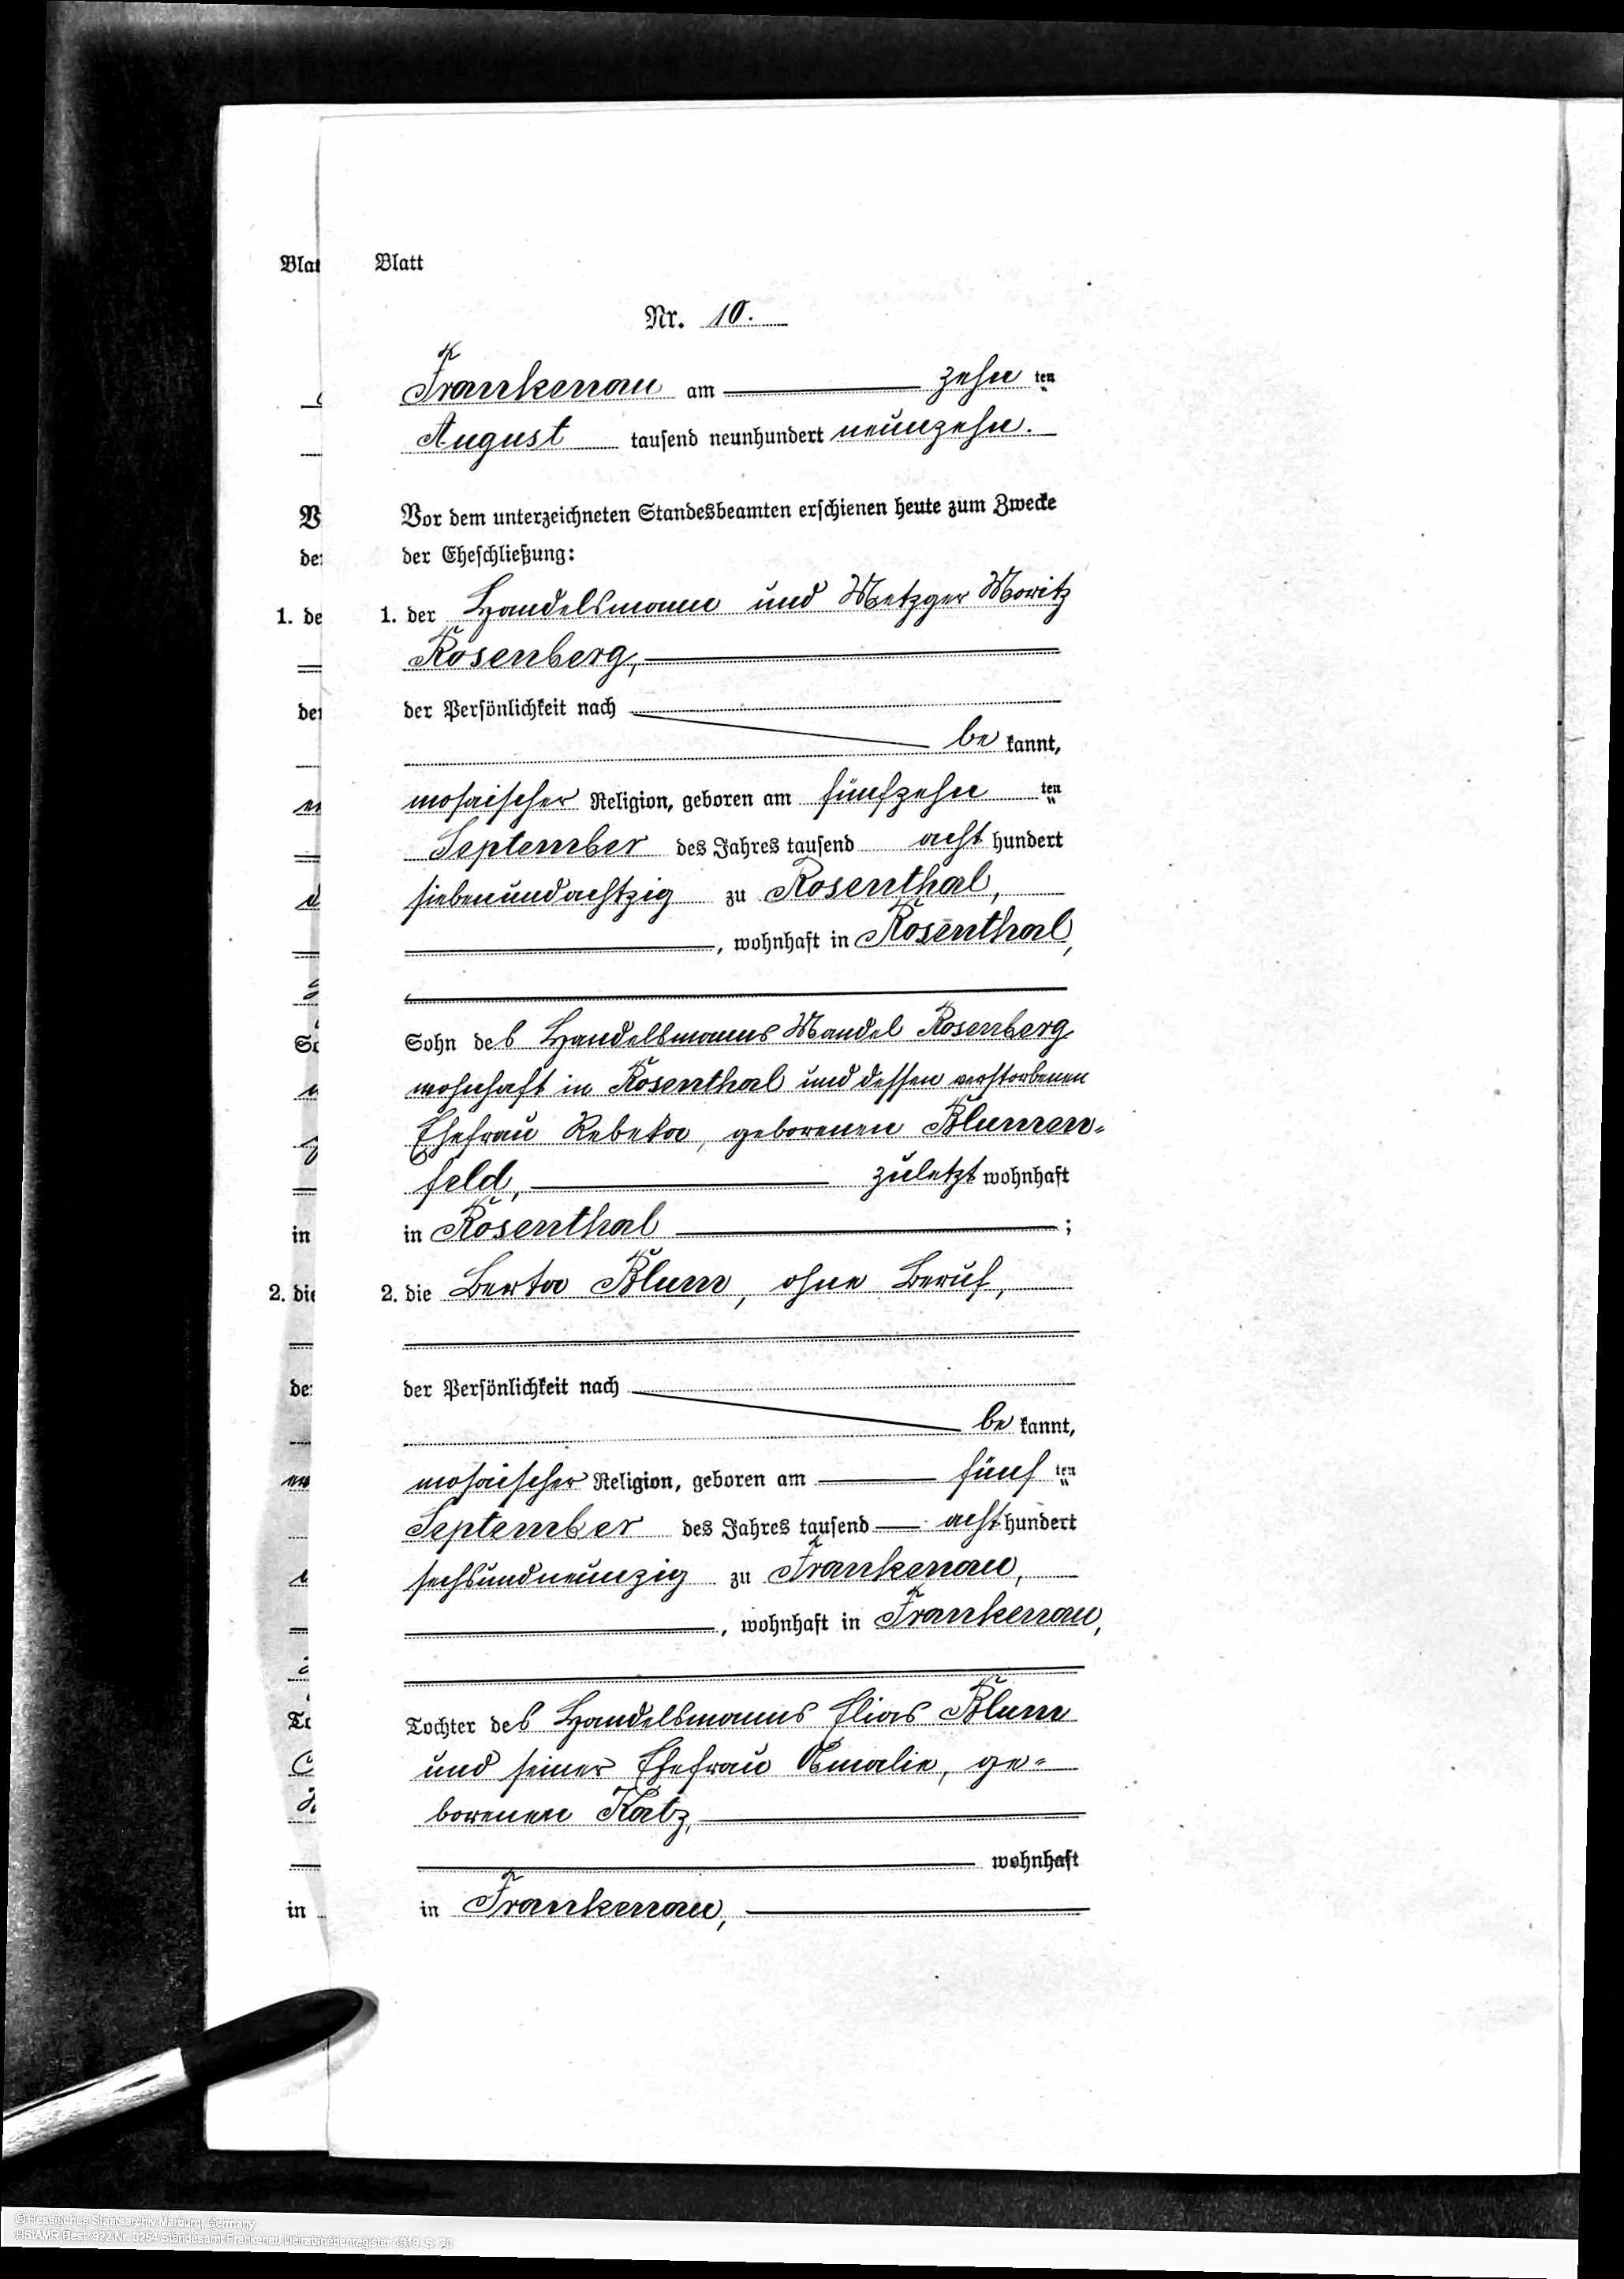 Blatt
Nr. 10.
Frankenau am zehn ten
August tausend neunhundert neunzehn.
Vor dem unterzeichneten Standesbeamten erschienen heute zum Zwecke
der Eheschließung:
1. der Handelsmann und Metzger Moritz
Rosenberg,
der Persönlichkeit nach
be kannt,
mosaischer Religion, geboren am fünfzehn ten
September des Jahres tausend acht hundert
siebenundachtzig zu Rosenthal,
, wohnhaft in Rosenthal,
Sohn des Handelsmanns Mandel Rosenberg
wohnhaft in Rosenthal und dessen verstorbenen
Ehefrau Rebeka, geborenen Blumen-
feld, zuletzt wohnhaft
in Rosenthal ;
2. die Berta Blum, ohne Beruf,
der Persönlichkeit nach
be kannt,
mosaischer Religion, geboren am fünf ten
September des Jahres tausend acht hundert
sechsundneunzig zu Frankenau,
, wohnhaft in Frankenau,
Tochter des Handelsmanns Elias Blum
und seiner Ehefrau Amalie, ge-
borenen Katz,
wohnhaft
in Frankenau,
Blat
V
de
1. de
de
So
in
2. die
de
To
in
© Hessisches Staatsarchiv Marburg, Germany
HStAMR Best. 922 Nr. 3254 Standesamt Frankenau Heiratsnebenregister 1919, S. 20